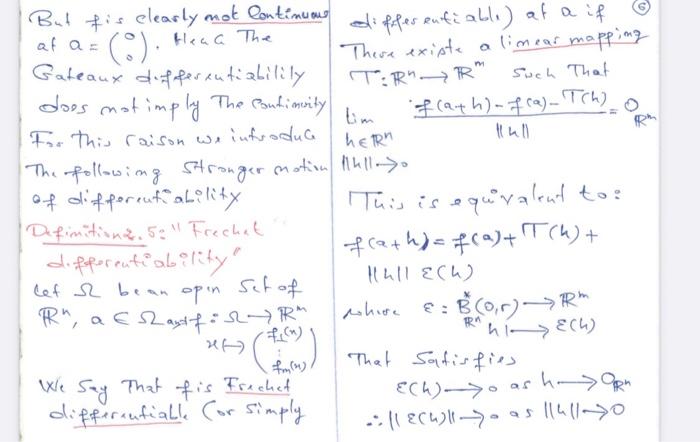 But f is clearly not Continuous
at a = (0 0). Hence The
Gateaux differentiability
does not imply The Continuity
For this raison we introduce
The following stronger notion
of differentiability
Definition 2.5: "Frechet
differentiability"
let Ω be an open Set of
ℝⁿ, a ∈ Ω and f: Ω → ℝᵐ
x ↦ (f₁(x) ⋮ fₘ(x))
We Say That f is Frechet
differentiable (or simply
6
differentiable) at a if
There exists a linear mapping
T: ℝⁿ → ℝᵐ Such That
lim h∈ℝⁿ ||h||→0 (f(a+h) - f(a) - T(h)) / ||h|| = 0_ℝᵐ
This is equivalent to:
f(a+h) = f(a) + T(h) +
||h|| ε(h)
where ε: B*_ℝⁿ(0,r) → ℝᵐ
h ↦ ε(h)
That Satisfies
ε(h) → 0 as h → 0_ℝⁿ
∴ ||ε(h)|| → 0 as ||h|| → 0